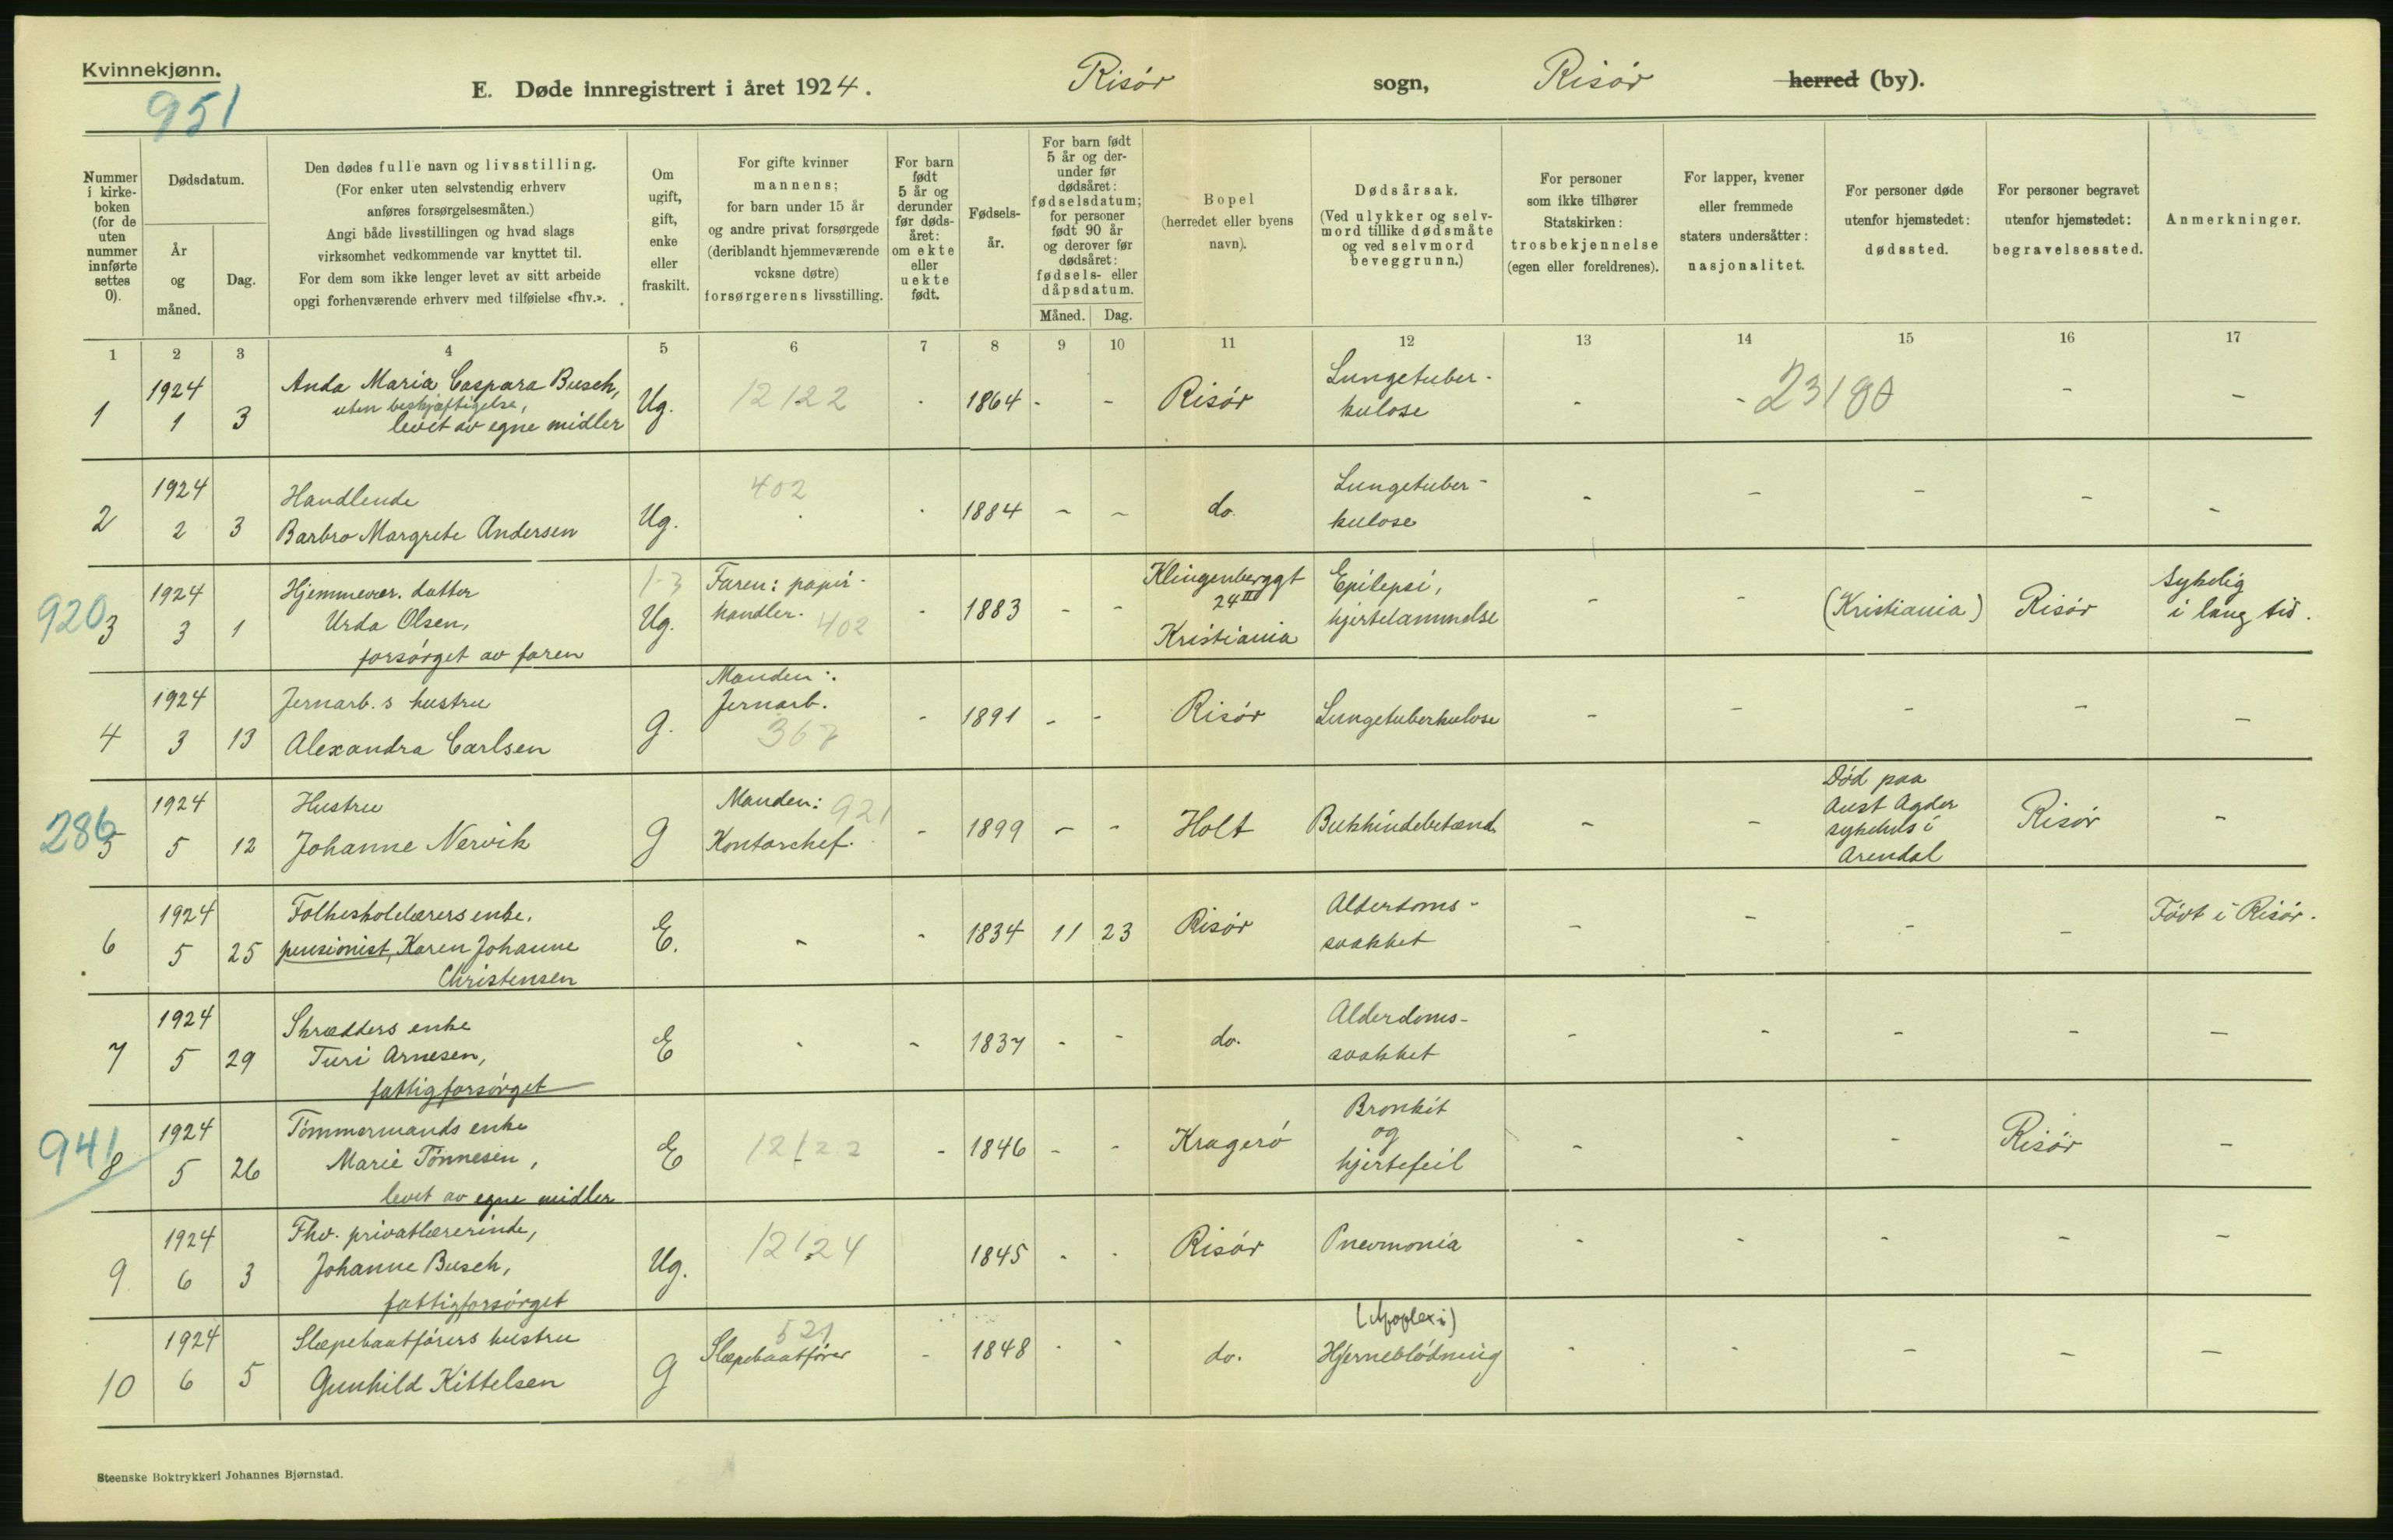 Kvinnekjønn.
951
E. Døde innregistrert i året 1924. Risør sogn, Risør herred (by).
Nummer i kirkeboken (for de uten nummer innførte settes 0).
Dødsdatum.
År og måned.
Dag.
Den dødes fulle navn og livsstilling.
(For enker uten selvstendig erhverv
anføres forsørgelsesmåten.)
Angi både livsstillingen og hvad slags
virksomhet vedkommende var knyttet til.
For dem som ikke lenger levet av sitt arbeide
opgi forhenværende erhverv med tilføielse «fhv.».
Om ugift, gift, enke eller fraskilt.
For gifte kvinner
mannens;
for barn under 15 år
og andre privat forsørgede
(deriblandt hjemmeværende
voksne døtre)
forsørgerens livsstilling.
For barn
født
5 år og
derunder
før døds-
året:
om ekte
eller
uekte
født.
Fødsels-
år.
For barn født
5 år og der-
under før
dødsåret:
fødselsdatum;
for personer
født 90 år
og derover før
dødsåret:
fødsels- eller
dåpsdatum.
Måned. Dag.
Bopel
(herredet eller byens
navn).
Dødsårsak.
(Ved ulykker og selv-
mord tillike dødsmåte
og ved selvmord
beveggrunn.)
For personer
som ikke tilhører
Statskirken:
trosbekjennelse
(egen eller foreldrenes).
For lapper, kvener
eller fremmede
staters undersåtter:
nasjonalitet.
For personer døde
utenfor hjemstedet:
dødssted.
For personer begravet
utenfor hjemstedet:
begravelsessted.
Anmerkninger.
1 2 3 4 5 6 7 8 9 10 11 12 13 14 15 16 17
1 1924 1 3 Anda Maria Caspara Busch,
uten beskjæftigelse,
levet av egne midler
Ug. 12122 - 1864 - - Risör
Lungetuber-
kulose
- - 23180 - -
2 1924 2 3 Handlende
Barbro Margrete Andersen
Ug. 402 - 1884 - - do.
Lungetuber-
kulose
- - - - -
920
3 1924 3 1 Hjemmevær. datter
Urda Olsen,
forsörget av faren
1-3
Ug. Faren: papir-
handler. 402
- 1883 - - Klingenberggt
24 III
Kristiania
Epilepsi,
hjertelammelse
- - (Kristiania) Risör
Sykelig
i lang tid.
4 1924 3 13 Jernarb.s hustru
Alexandra Carlsen
g. Manden:
Jernarb.
367
- 1891 - - Risör Lungetuberkulose - - - - -
286
5 1924 5 12 Hustru
Johanne Nervik
g Manden: 921
Kontorchef.
- 1899 - - Holt Bukhindebetænd. - -
Död paa
Aust Agder
sykehus i
Arendal
Risör -
6 1924 5 25 Folkeskolelærers enke,
pensionist, Karen Johanne
Christensen
E. - - 1834 11 23 Risör
Alderdoms-
svakhet
- - - - Födt i Risör.
7 1924 5 29 Skrædders enke
Turi Arnesen,
fattigforsörget
E - - 1837 - - do.
Alderdoms-
svakhet
- - - - -
941
8 1924 5 26 Tömmermands enke
Marie Tönnesen,
levet av egne midler
E 12122 - 1846 - - Kragerö
Bronkit
og
hjertefeil
- - - Risör -
9 1924 6 3 Fhv. privatlærerinde,
Johanne Busch,
fattigforsörget
Ug. 12124 1845 - - Risör Pnevmonia - - - - -
10 1924 6 5 Slæpebaatförers hustru
Gunhild Kittelsen
g 521
Slæpebaatförer
- 1848 - - do.
(Apoplexi)
Hjerneblödning
- - - - -
Steenske Boktrykkeri Johannes Bjørnstad.